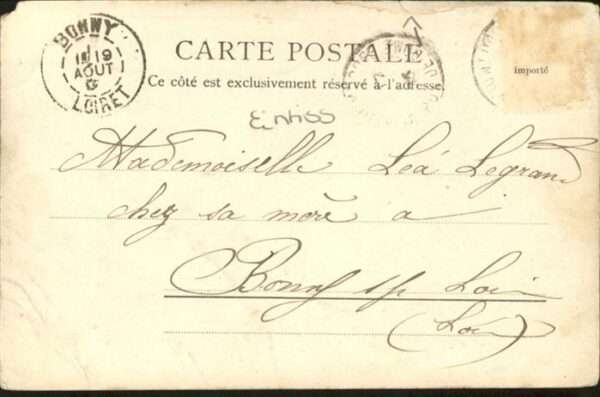 BONNY
19
AOUT
LOIRET
CARTE POSTALE
Ce côté est exclusivement réservé à l'adresse
importé
Mademoiselle Léa Legrand
chez sa mère a
Bonny s/ Loire
(Loiret)